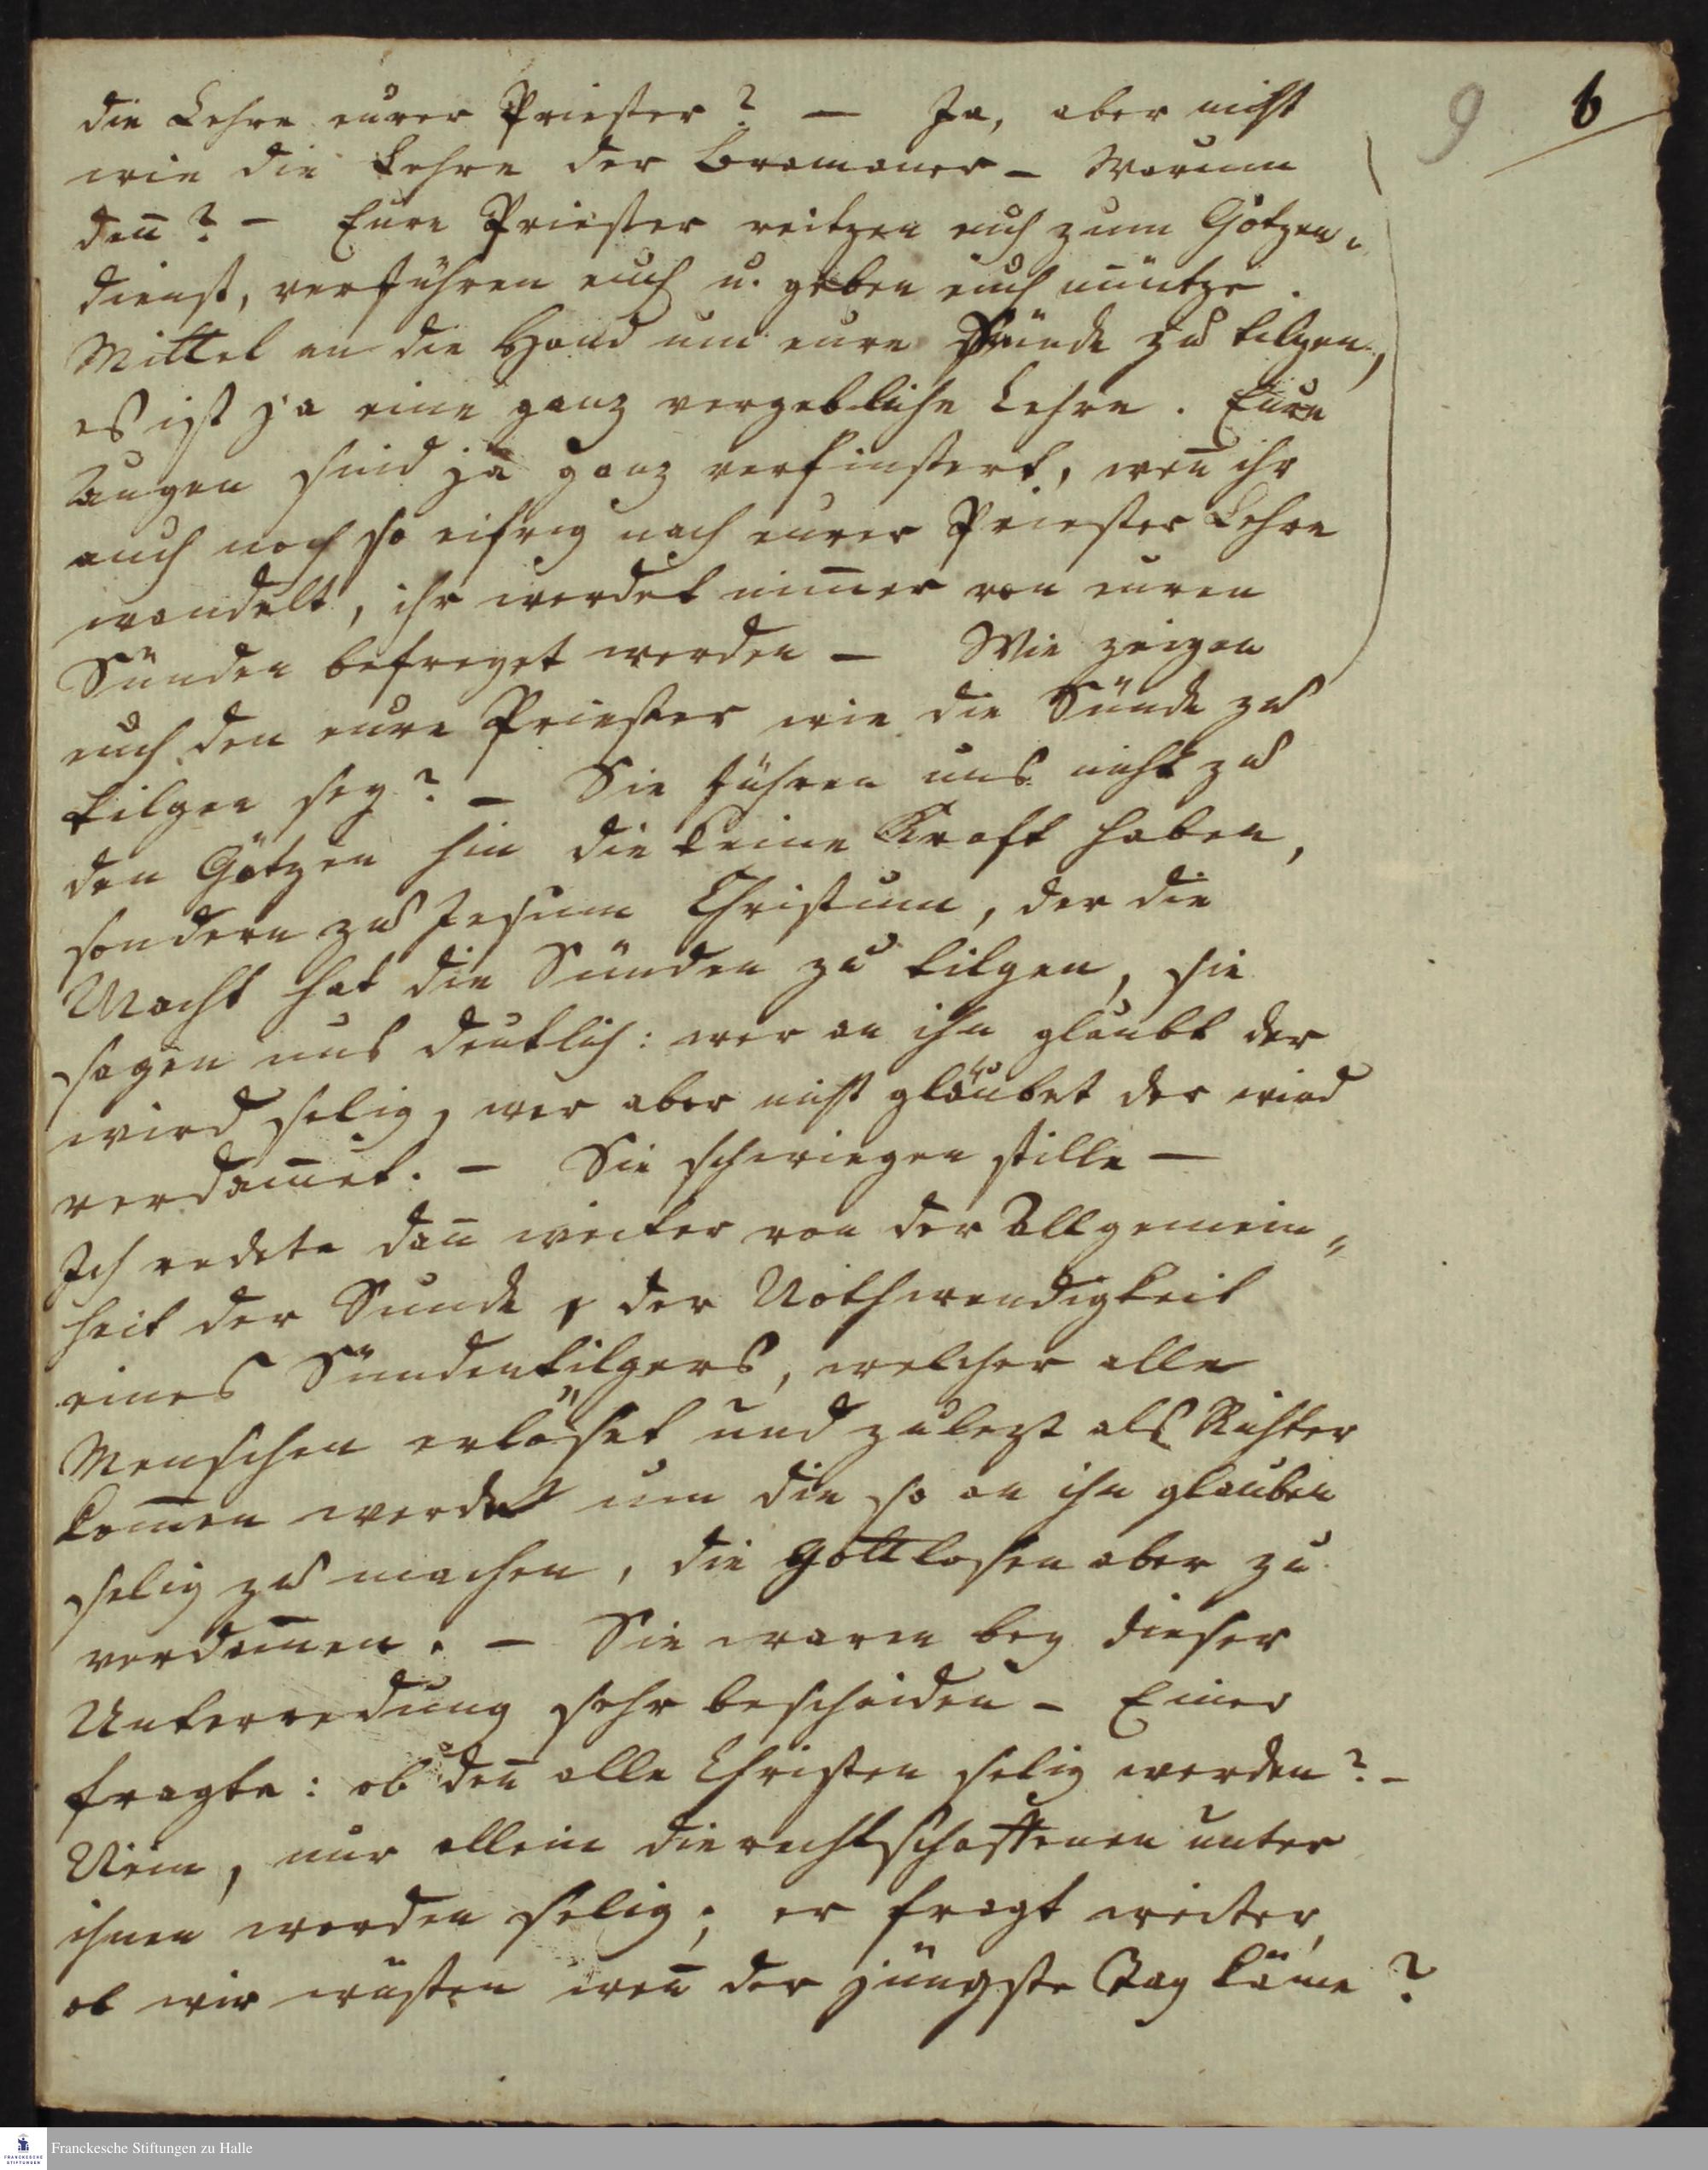 9 6
die Lehre eurer Priester? – Ja, aber nicht
wie die Lehre der Bramaner – Warum
deñ? – Eure Priester reitzen euch zum Götzen-
dienst, verführen euch u. geben euch unnütze
Mittel an die Hand um eure Sünde zu tilgen,
es ist ja eine ganz vergebliche Lehre. Eure
Augen sind ja ganz verfinstert, weñ ihr
auch noch so eifrig nach eurer Priester Lehre
wandelt, ihr werdet nim̄er von euren
Sünden befreyet werden – Wie zeigen
euch den eure Priester wie die Sünde zu
tilgen sey? – Sie führen uns nicht zu
den Götzen hin die keine Kraft haben,
sondern zu Jesum Christum, der die
Macht hat die Sünden zu tilgen, sie
sagen uns deutlich: wer an ihn glaubt der
wird selig, wer aber nicht glaubet der wird
verdam̄et. – Sie schwiegen stille –
Ich redete dañ weiter von der Allgemein-
heit der Sünde, der Nothwendigkeit
eines Sündentilgers, welcher alle
Menschen erlöset und zulezt als Richter
kom̄en werde um die so an ihn glauben
selig zu machen, die gottlosen aber zu
verdam̄en. – Sie waren bey dieser
Unterredung sehr bescheiden – Einer
fragte: ob deñ alle Christen selig werden? –
Nein, nur allein die rechtschaffenen unter
ihnen werden selig; er fragt weiter,
ob wir wüsten weñ der jüngste Tag käme?
Franckesche Stiftungen zu Halle